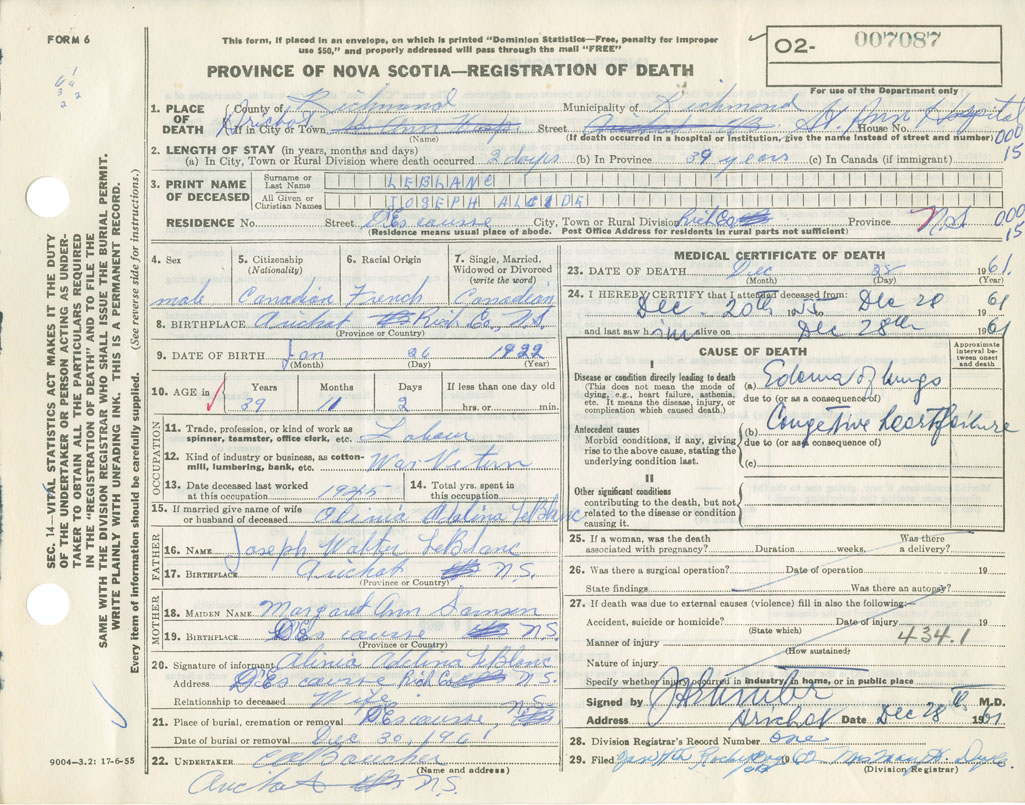 FORM 6
This form, if placed in an envelope, on which is printed "Dominion Statistics—Free, penalty for improper
use $50," and properly addressed will pass through the mail "FREE"
O2- 007087
For use of the Department only
PROVINCE OF NOVA SCOTIA—REGISTRATION OF DEATH
SEC. 14—VITAL STATISTICS ACT MAKES IT THE DUTY
OF THE UNDERTAKER OR PERSON ACTING AS UNDER-
TAKER TO OBTAIN ALL THE PARTICULARS REQUIRED
IN THE "REGISTRATION OF DEATH" AND TO FILE THE
SAME WITH THE DIVISION REGISTRAR WHO SHALL ISSUE THE BURIAL PERMIT.
WRITE PLAINLY WITH UNFADING INK. THIS IS A PERMANENT RECORD.
Every item of information should be carefully supplied. (See reverse side for instructions.)
1. PLACE OF DEATH County of Richmond Municipality of Richmond
Arichat If in City or Town Street St Ann Hospital House No.
(Name) (If death occurred in a hospital or Institution, give the name instead of street and number)
000
15
2. LENGTH OF STAY (in years, months and days)
(a) In City, Town or Rural Division where death occurred 2 days (b) In Province 39 years (c) In Canada (if immigrant)
3. PRINT NAME OF DECEASED Surname or Last Name LEBLANC
All Given or Christian Names JOSEPH ALCIDE
RESIDENCE No. Street D'Escousse City, Town or Rural Division Rich Co Province N.S
(Residence means usual place of abode. Post Office Address for residents in rural parts not sufficient)
000
15
4. Sex 5. Citizenship (Nationality) 6. Racial Origin 7. Single, Married, Widowed or Divorced (write the word)
male Canadian French Canadian
8. BIRTHPLACE Arichat Rich Co., N.S.
(Province or Country)
9. DATE OF BIRTH Jan 26 1922
(Month) (Day) (Year)
10. AGE in Years Months Days If less than one day old
39 11 2 hrs. or min.
OCCUPATION
11. Trade, profession, or kind of work as spinner, teamster, office clerk, etc. Labour
12. Kind of industry or business, as cotton-mill, lumbering, bank, etc. War Vetern
13. Date deceased last worked at this occupation 1945 14. Total yrs. spent in this occupation
15. If married give name of wife or husband of deceased Alinia Adalina LeBlanc
FATHER
16. NAME Joseph Walter LeBlanc
17. BIRTHPLACE Arichat N.S.
(Province or Country)
MOTHER
18. MAIDEN NAME Margaret Ann Samson
19. BIRTHPLACE D'Escousse N.S.
(Province or Country)
20. Signature of informant Alinia Adelina LeBlanc
Address D'Escousse Rich Co N.S.
Relationship to deceased Wife
21. Place of burial, cremation or removal D'Escousse, N.S.
Date of burial or removal Dec 30, 1961
22. UNDERTAKER
(Name and address)
Arichat N.S.
9004—3.2: 17-6-55
MEDICAL CERTIFICATE OF DEATH
23. DATE OF DEATH Dec 28 1961
(Month) (Day) (Year)
24. I HEREBY CERTIFY that I attended deceased from:
Dec. 20th 1955 to Dec 28 1961
and last saw him alive on Dec 28th 1961
CAUSE OF DEATH
Approximate interval between onset and death
I
Disease or condition directly leading to death
(This does not mean the mode of dying, e.g., heart failure, asthenia, etc. It means the disease, injury, or complication which caused death.)
(a) Edema of lungs
due to (or as a consequence of)
Antecedent causes
Morbid conditions, if any, giving rise to the above cause, stating the underlying condition last.
(b) Congestive heart failure
due to (or as a consequence of)
(c)
II
Other significant conditions
contributing to the death, but not related to the disease or condition causing it.
25. If a woman, was the death associated with pregnancy? Duration weeks. Was there a delivery?
26. Was there a surgical operation? Date of operation 19
State findings Was there an autopsy?
27. If death was due to external causes (violence) fill in also the following:
Accident, suicide or homicide? Date of injury 19
(State which)
434.1
Manner of injury
(How sustained)
Nature of injury
Specify whether injury occurred in industry, in home, or in public place
Signed by M.D.
Address Arichat Date Dec 28th 1961
28. Division Registrar's Record Number one
29. Filed 19
(Division Registrar)